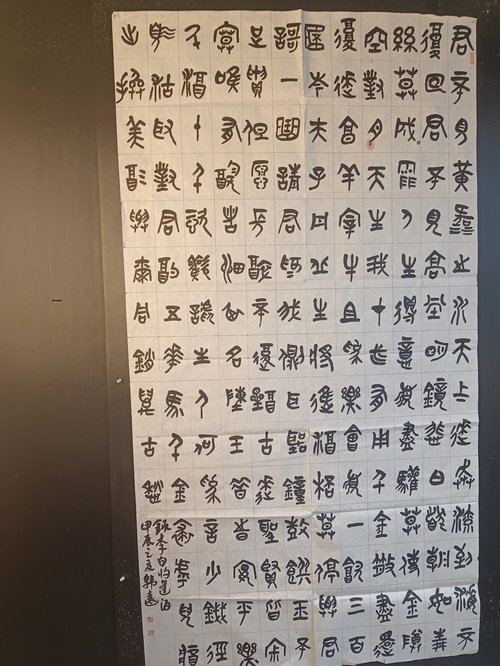 君不見黃河之水天上來奔流到海不
復回君不見高堂明鏡悲白髮朝如青
絲暮成雪人生得意須盡歡莫使金樽
空對月天生我材必有用千金散盡還
復來烹羊宰牛且為樂會須一飲三百
杯岑夫子丹丘生將進酒杯莫停與君
謌一曲請君為我傾耳聽鐘鼓饌玉不
足貴但願長醉不復醒古來聖賢皆寂
寞唯有飲者留其名陳王昔時宴平樂
斗酒十千恣歡謔主人何為言少錢徑
須沽取對君酌五花馬千金裘呼兒將
出換美酒與爾同銷萬古愁
錄李白將進酒
甲辰之夏韓